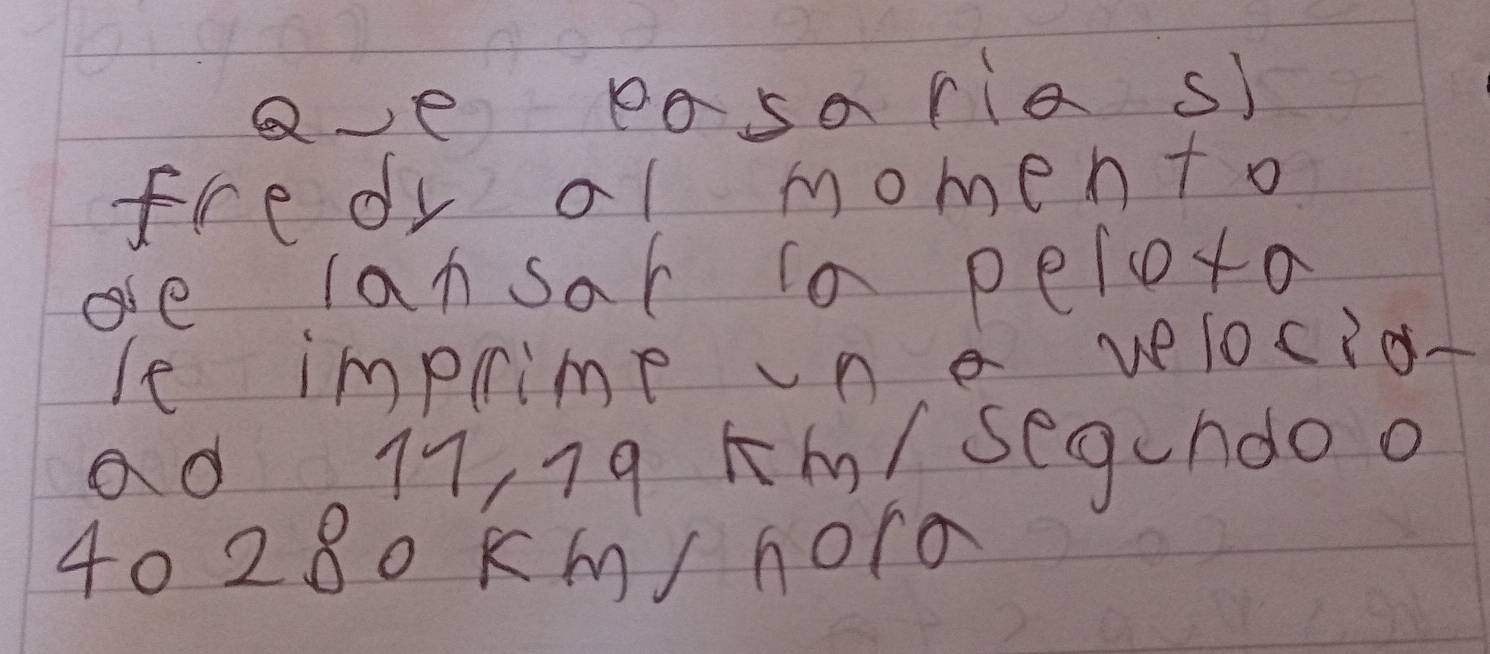 Que pasaria si
fredy al momento
de lansar la pelota
le imprime una velocid-
ad 11,19 km/segundo o
40280 Km/hora